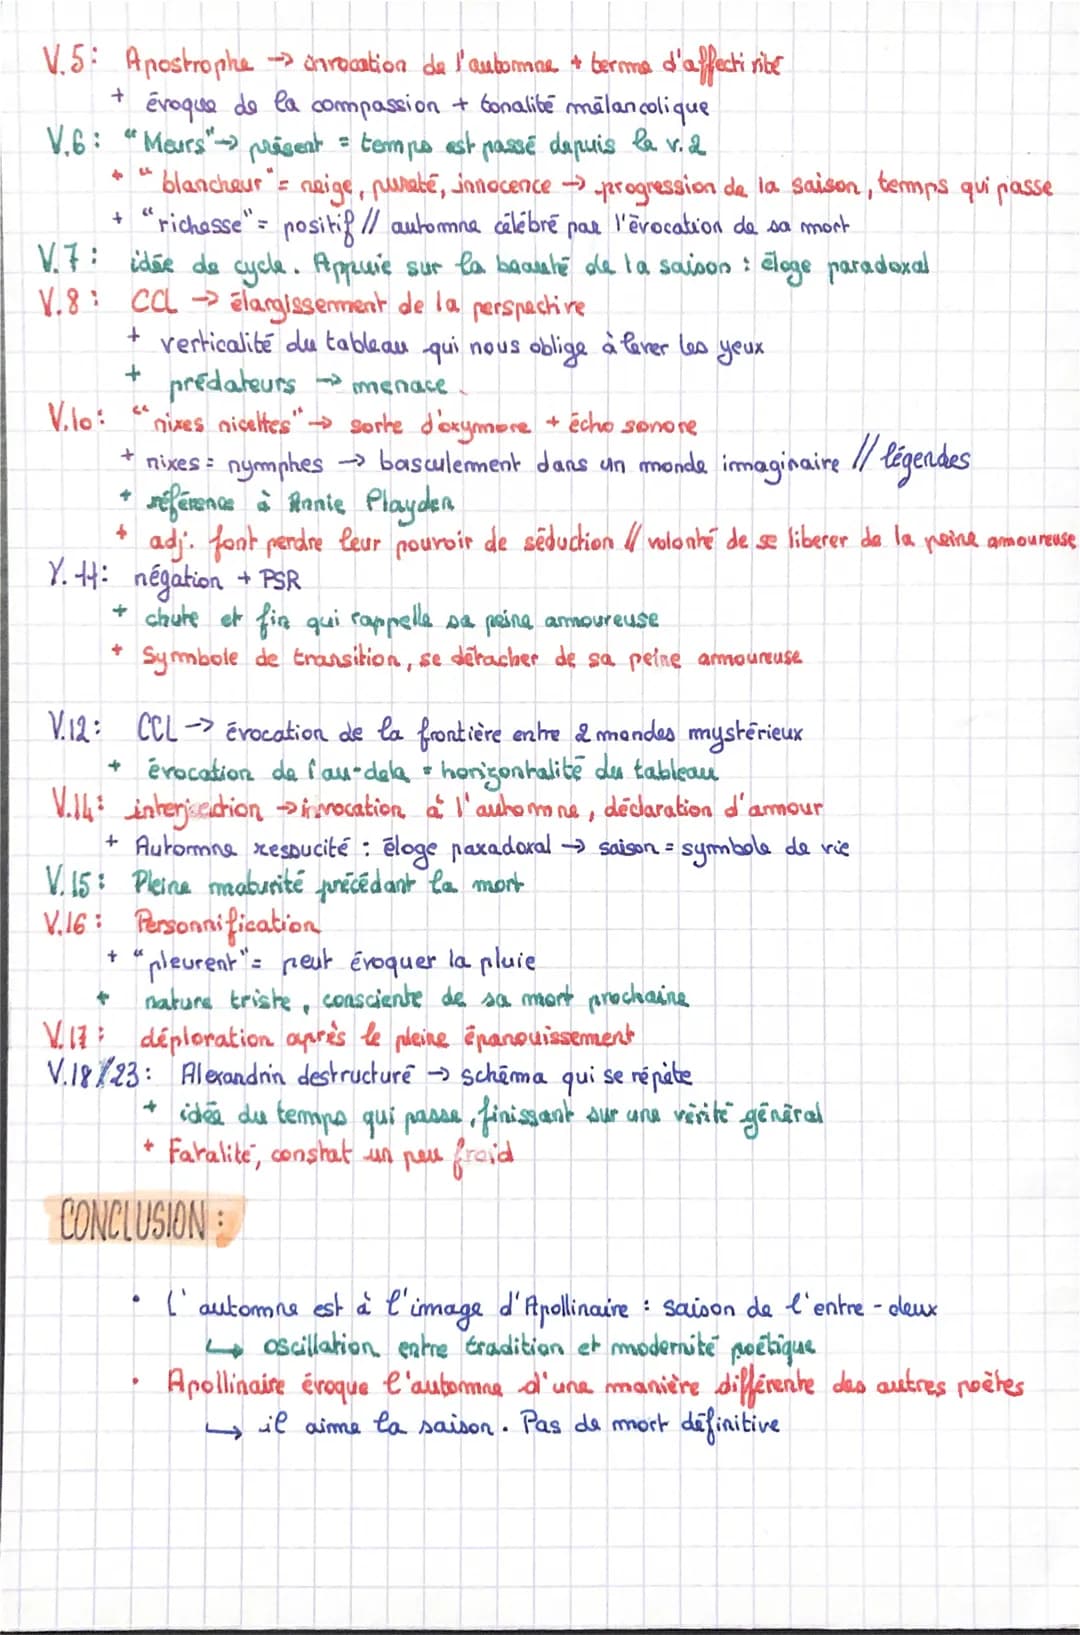 V.5: Apostrophe → invocation de l'automne + terme d'affectivité
+ évoque de la compassion + tonalité mélancolique
V.6: "Meurs" → présent = temps est passé depuis le v.2
+ "blancheur" = neige, pureté, innocence → progression de la saison, temps qui passe
+ "richesse" = positif // automne célébré par l'évocation de sa mort
V.7: idée de cycle. Appuie sur la beauté de la saison : éloge paradoxal
V.8: CCL → élargissement de la perspective
+ verticalité du tableau qui nous oblige à lever les yeux
+ prédateurs → menace.
V.10: "nixes nicettes" → sorte d'oxymore + écho sonore
+ nixes = nymphes → basculement dans un monde imaginaire // légendes
+ référence à Annie Playden
+ adj. font perdre leur pouvoir de séduction // volonté de se liberer de la peine amoureuse
V.11: négation + PSR
+ chute et fin qui rappelle sa peine amoureuse
+ Symbole de transition, se détacher de sa peine amoureuse
V.12: CCL → évocation de la frontière entre 2 mondes mystérieux
+ évocation de l'au-dela = horizontalité du tableau
V.14: interjection → invocation à l'automne, déclaration d'amour
+ Automne ressucité : éloge paradoxal → saison = symbole de vie
V.15: Pleine maturité précédant la mort
V.16: Personnification
+ "pleurent" = peut évoquer la pluie
+ nature triste, consciente de sa mort prochaine
V.17: déploration après le pleine épanouissement
V.18/23: Alexandrin destructuré → schéma qui se répète
+ idée du temps qui passe, finissant sur une vérité général
+ Fatalité, constat un peu froid
CONCLUSION :
• L'automne est à l'image d'Apollinaire : saison de l'entre-deux
↳ oscillation entre tradition et modernité poétique
• Apollinaire évoque l'automne d'une manière différente des autres poètes
↳ il aime la saison. Pas de mort définitive